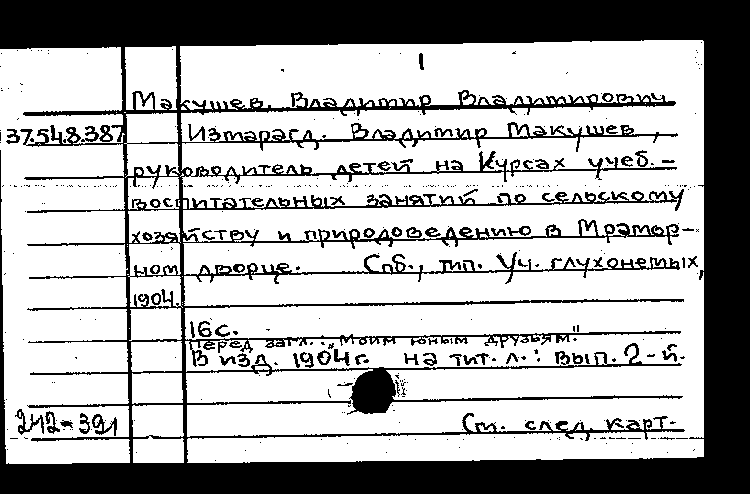 1
Макушев, Владимир Владимирович
37.54.8.387 Измарагд. Владимир Макушев,
руководитель детей на Курсах учеб.-
воспитательных занятий по сельскому
хозяйству и природоведению в Мрамор-
ном дворце. Спб., тип. Уч. глухонемых,
1904.
16с.
Перед загл.: "Моим юным друзьям."
В изд. 1904г. на тит. л.: вып. 2-й.
242-391 См. след. карт.